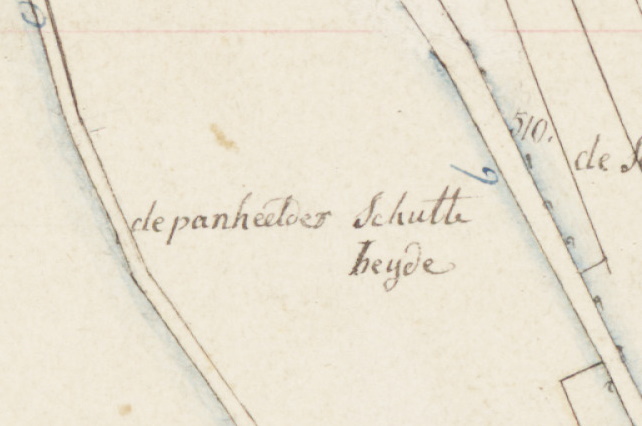 de panheelder Schutte
heyde
510.
de
6